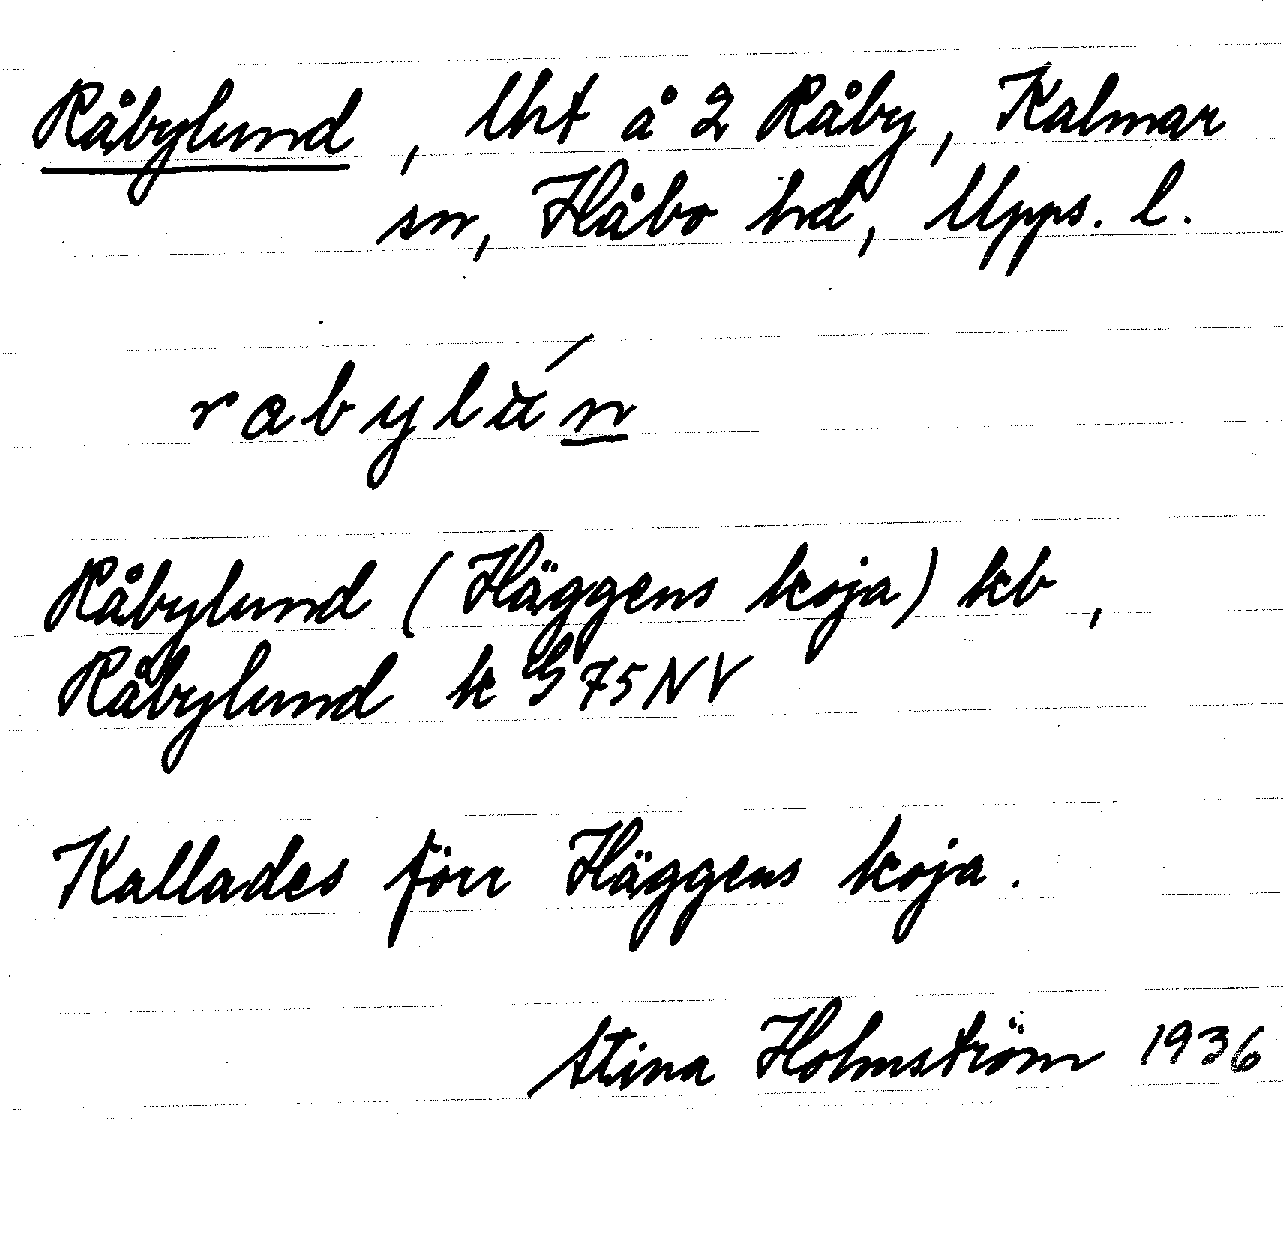 Råbylund, lht å 2 Råby, Kalmar
sn, Håbo hd, Upps. l.
rabylún
Råbylund (Häggens koja) kb,
Råbylund k G 75 NV
Kallades förr Häggens koja.
Stina Holmström 1936